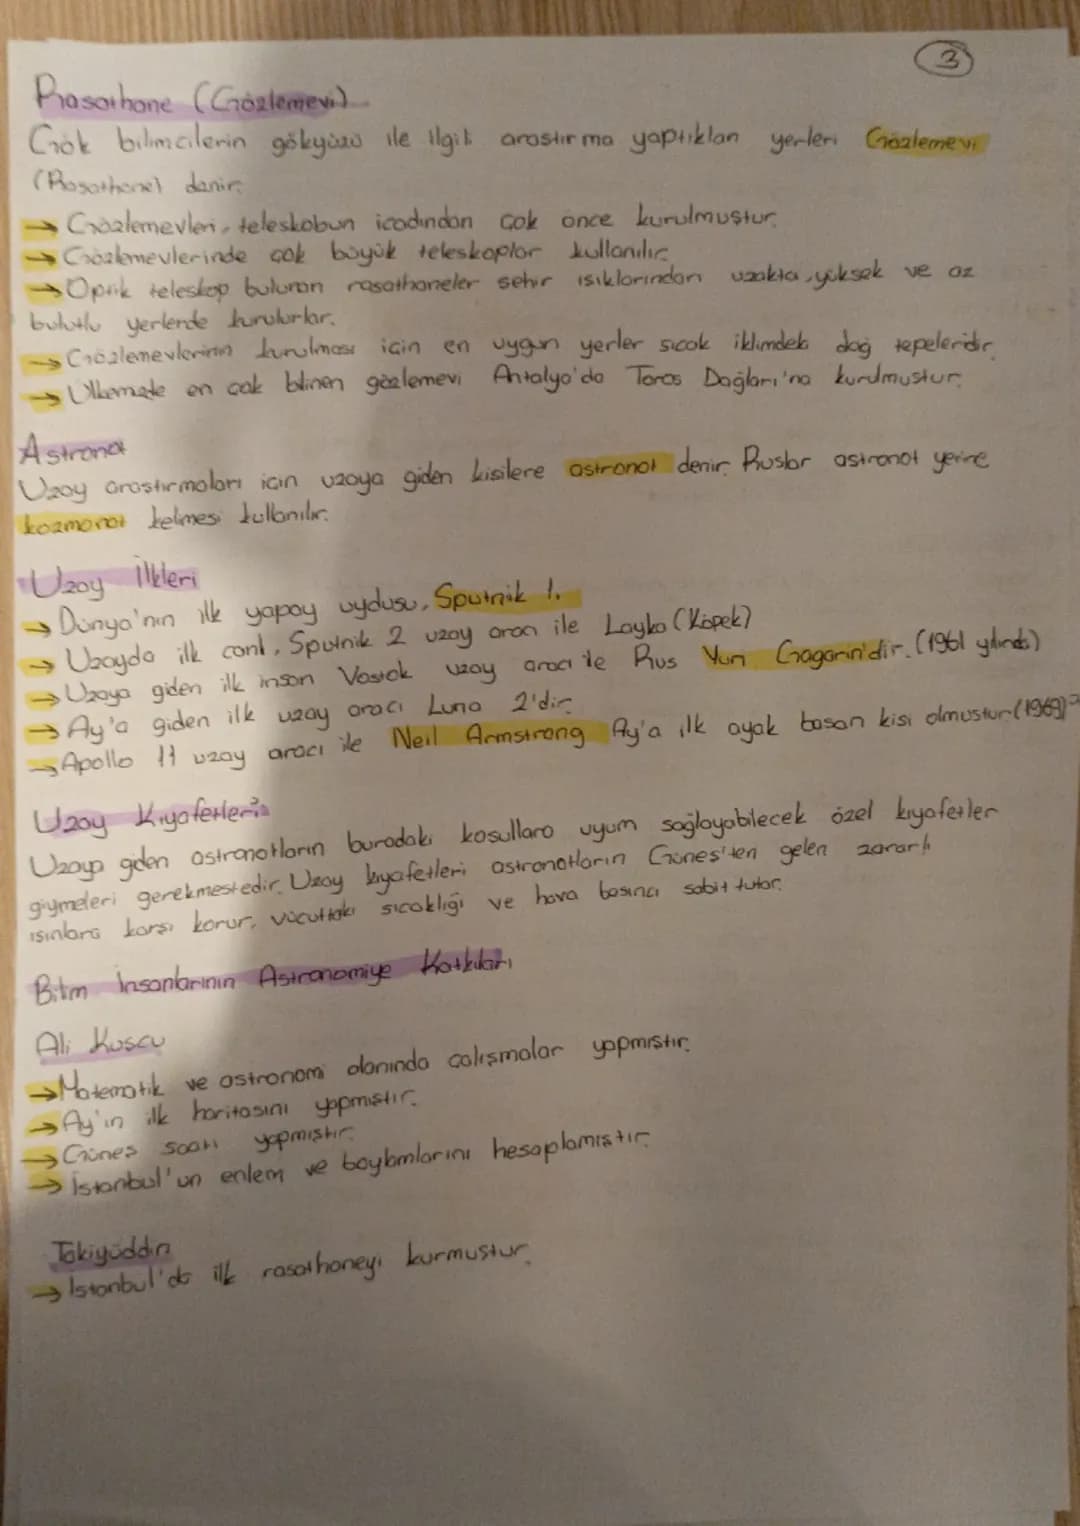 3
Rasathane (Gözlemevi)
Gök bilimcilerin gökyüzü ile ilgili arastırma yaptıkları yerleri Gözlemevi
(Rasathane) denir.
→ Gözlemevleri, teleskobun icadından çok önce kurulmuştur.
→ Gözlemevlerinde çok büyük teleskoplar kullanılır.
→ Optik teleskop bulunan rasathaneler sehir ısıklarından uzakta, yüksek ve az
bulutlu yerlerde kurulurlar.
→ Gözlemevlerinin kurulması için en uygun yerler sıcak iklimdeki dağ tepeleridir.
→ Ülkemizde en çok bilinen gözlemevi Antalya'da Toros Dağları'na kurulmustur.
Astronot
Uzay arastırmaları icin uzaya giden kisilere astronot denir. Ruslar astronot yerine
kozmonot kelimesi kullanılır.
Uzay İlkleri
→ Dünya'nın ilk yapay uydusu, Sputnik 1.
→ Uzayda ilk canlı, Sputnik 2 uzay aracı ile Layka (Köpek)
→ Uzaya giden ilk insan Vostok uzay aracı ile Rus Yuri Gagarin'dir. (1961 yılında)
→ Ay'a giden ilk uzay aracı Luna 2'dir.
→ Apollo 11 uzay aracı ile Neil Armstrong Ay'a ilk ayak basan kisi olmustur. (1969)
Uzay Kıyafetleri
Uzaya giden astronotların buradaki kosullara uyum sağlayabilecek özel kıyafetler
giymeleri gerekmektedir. Uzay kıyafetleri astronotların Günes'ten gelen zararlı
ısınlara karsı korur, vücuttaki sıcaklığı ve hava basıncı sabit tutar.
Bilim İnsanlarının Astronomiye Katkıları
Ali Kuscu
→ Matematik ve astronomi alanında calışmalar yapmıstır.
→ Ay'ın ilk haritasını yapmıstır.
→ Günes saati yapmıstır.
→ İstanbul'un enlem ve boylamlarını hesaplamıstır.
Takiyüddin
→ İstanbul'da ilk rasathaneyi kurmustur.